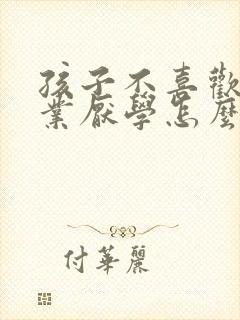 孩子不喜歡
業厭學怎麼
付華麗